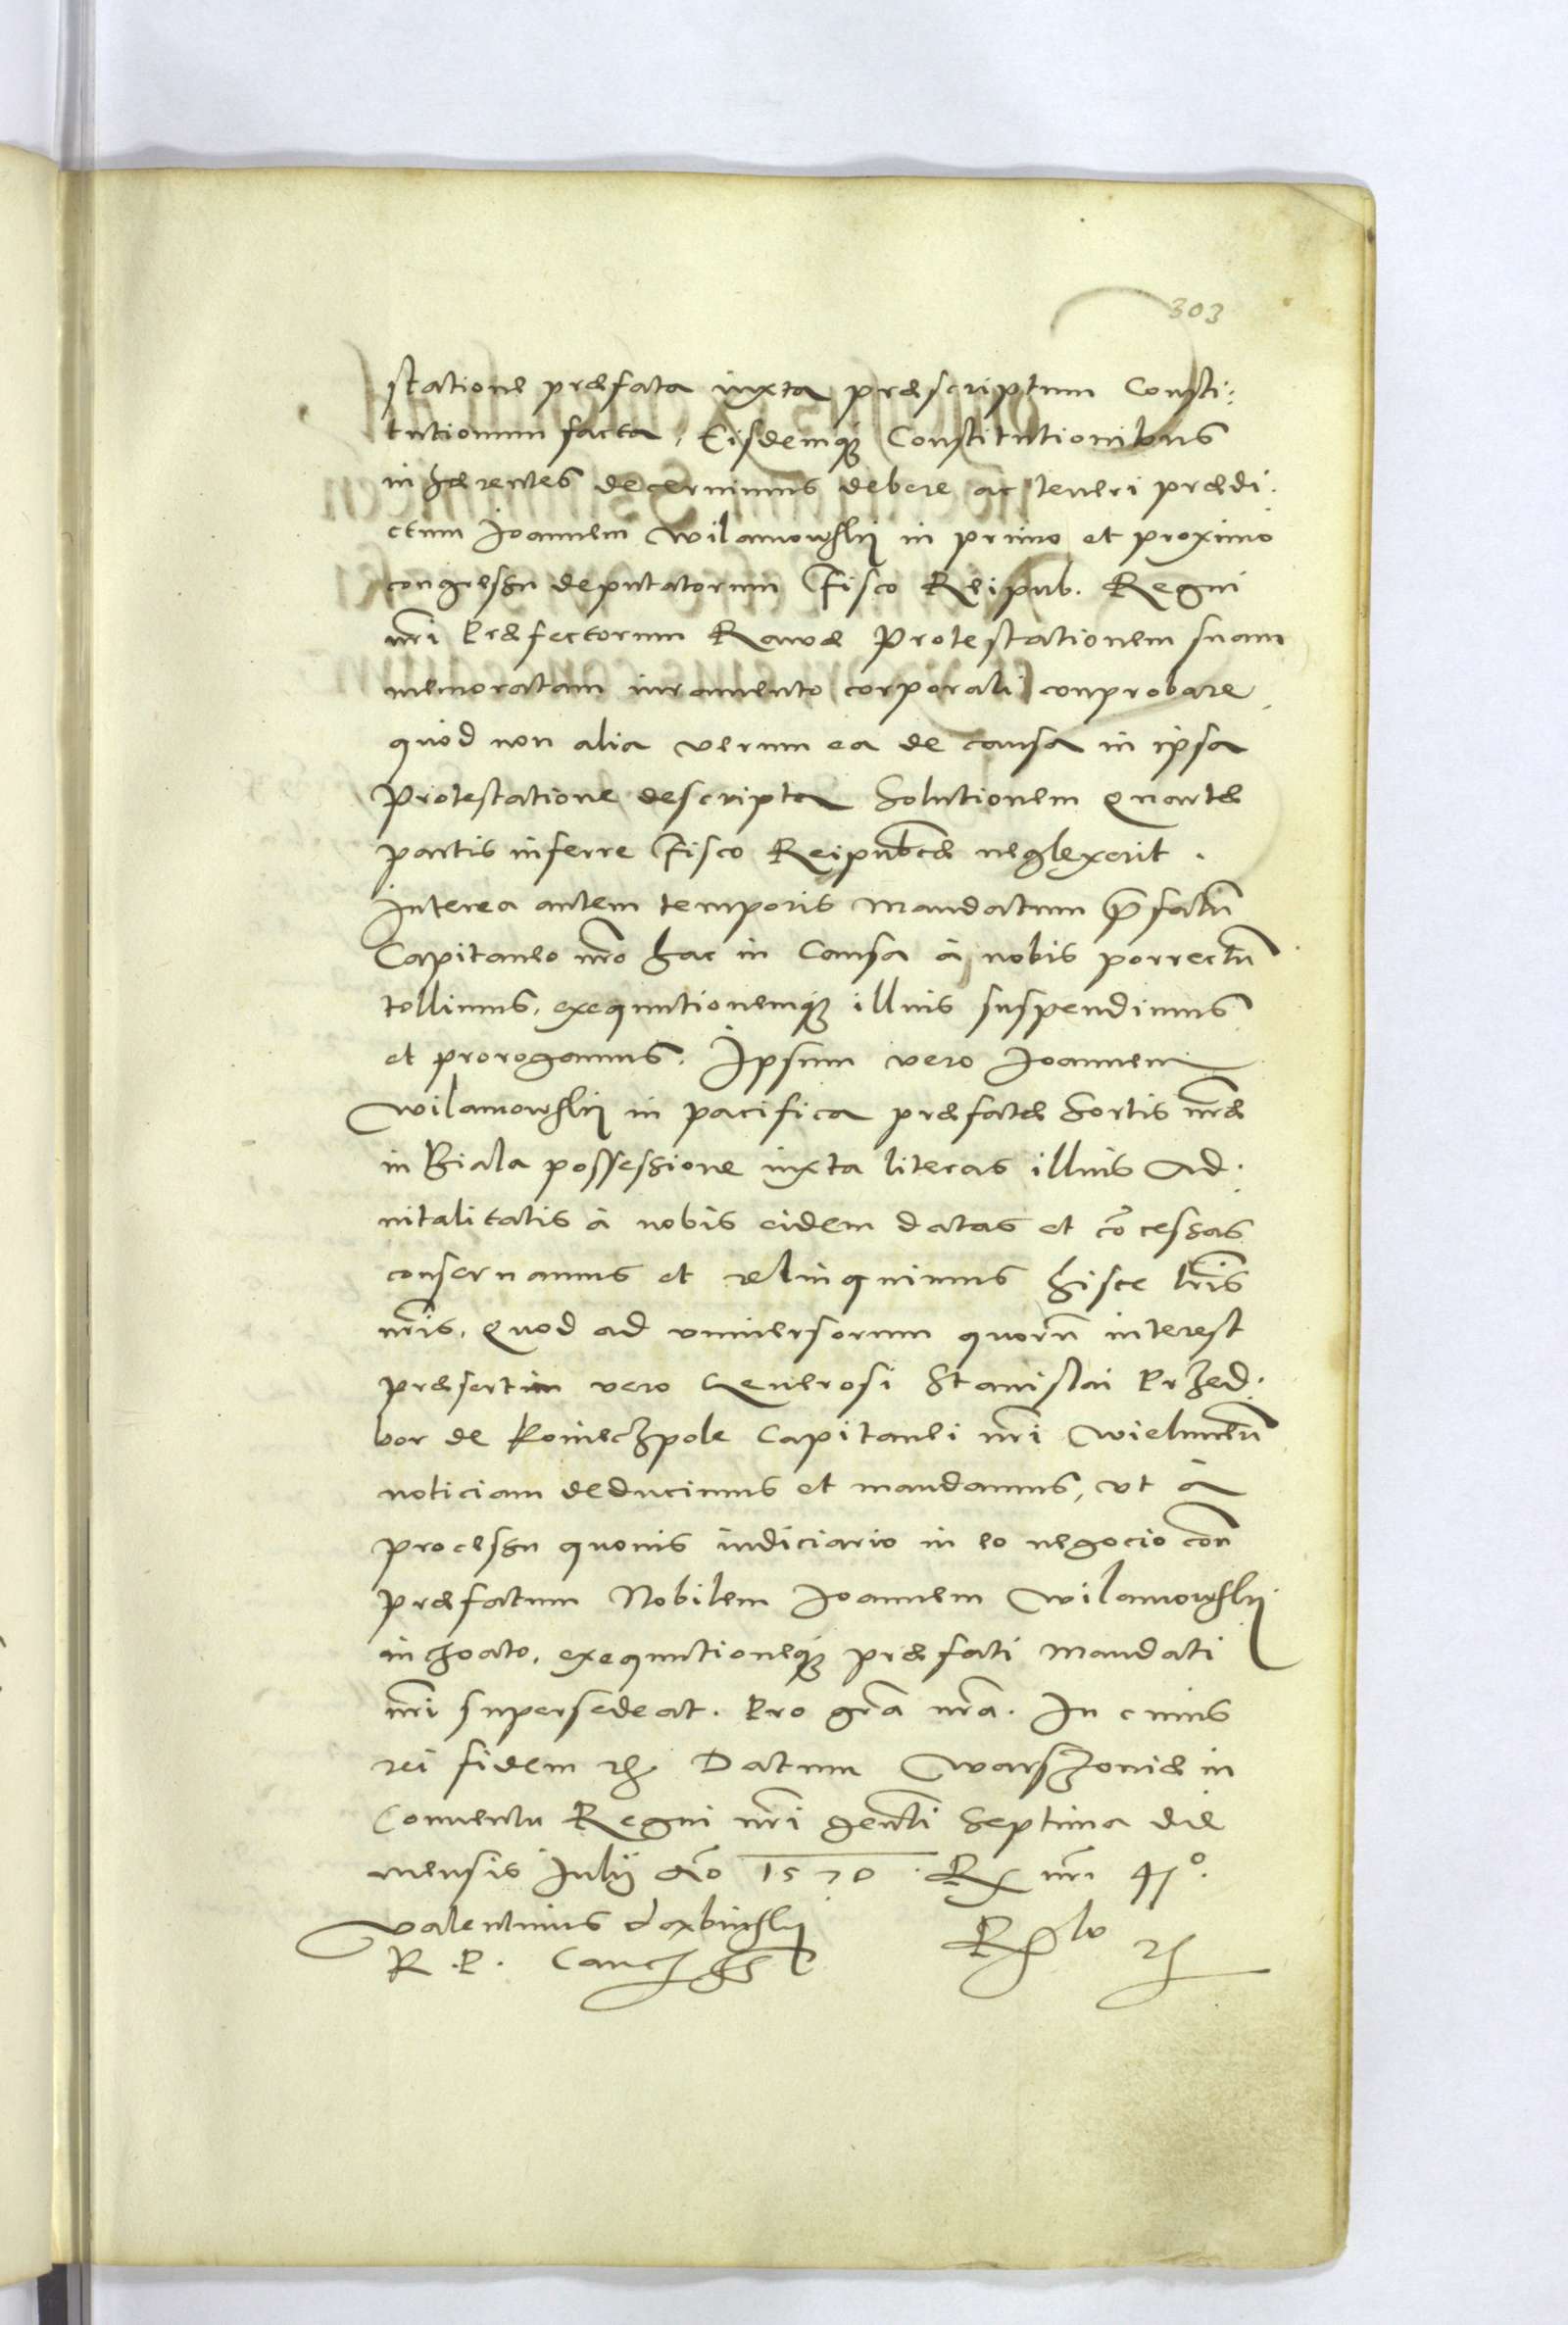 303
statione præfata iuxta præscriptum Consti:
tutionum facta, Eisdemq; Constitutionibus
inhærentes decernimus debere ac teneri prædi.
ctum Joannem Wilamowskij in primo et proximo
congressu deputatorum Fisco Reipub. Regni
nri Præfectorum Rawæ Protestationem suam
memoratam iuramento corporali conprobare,
quod non alia verum ea de causa in ipsa
Protestatione descripta Solutionem Quartæ
partis inferre Fisco Reipubcæ neglexerit.
Interea autem temporis Mandatum p̃fatũ
Capitaneo nro hac in Causa à nobis porrectũ
tollimus, exequutionemq; illius suspendimus
et prorogamus. Ipsum vero Joannem
Wilamowskij in pacifica præfatæ Sortis nræ
in Biala possessione iuxta literas illius Ad.
uitalitatis à nobis eidem datas et cõcessas
conseruamus et relinquimus hisce lris
nris, Quod ad vniuersorum quorũ interest
præsertim vero Generosi Stanislai Przed.
bor de Konieczpole Capitanei nri Wielunen̄
noticiam deducimus et mandamus, vt à
processu quouis iudiciario in eo negocio con̄
præfatum Nobilem Joannem Wilamowskij
inchoato, exequutioneq; præfati Mandati
nri supersedeat. Pro gra nra. In cuius
rei fidem &c. Datum Warszouiæ in
Conuentu Regni nri gen̄li Septima die
mensis Julij Aõ 1570. R̃ nri 41º.
Valentinus Dæbinskij
R. P. Canc̃ sst